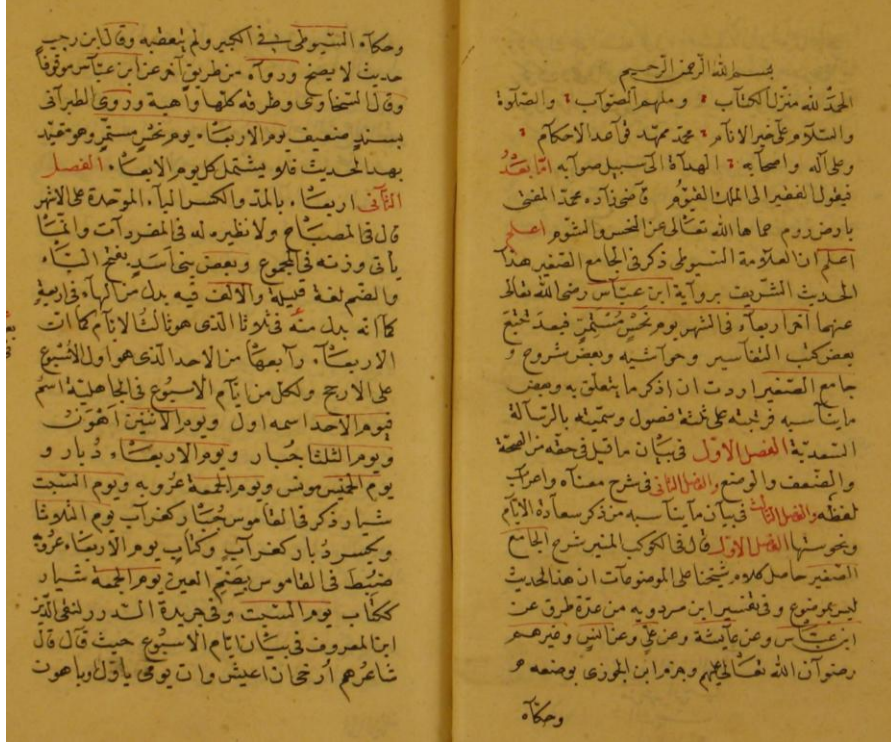 بسم الله الرحمن الرحيم
الحمد لله منزل الكتاب وملهم الصواب والصلوة
والسلام على خير الانام محمد ممهد قواعد الاحكام
وعلى آله واصحابه الهداة الى سبيل صوابه اما بعد
فيقول الفقير الى الملك القيوم قاضى زاده محمد المفتى
بارض روم حماها الله تعالى عن النحس والشوم اعلم
اعلم ان العلامة السيوطى ذكر فى الجامع الصغير هذا
الحديث الشريف برواية ابن عباس رضى الله تعالى
عنهما آخر اربعاء فى الشهر يوم نحس مستمر فبعد تتبع
بعض كتب التفاسير وحواشيه وبعض شروح و
جامع الصغير اردت ان اذكر ما يتعلق به وبعض
ما يناسبه فرتبته على ثلثة فصول وسميته بالرسالة
السعدية الفصل الاول فى بيان ما قيل فى حقه من الصحة
والضعف والوضع والفصل الثانى فى شرح معناه واعراب
لفظه والفصل الثالث فى بيان ما يناسبه من ذكر سعادة الايام
ونحوستها الفصل الاول قال فى الكوكب المنير شرح الجامع
الصغير حاصل كلام شيخنا على الموضوعات ان هذا الحديث
ليس بموضوع وفى تفسير ابن مردويه من عدة طرق عن
ابن عباس وعن عايشة وعن على وعن انس وغيرهم
رضوان الله تعالى عليهم وجزم ابن الجوزى بوضعه و
وحكاه
وحكاه السيوطى فى الكبير ولم يتعقبه وقال ابن رجب
حديث لا يصح ورواه من طريق آخر عن ابن عباس موقوفا
وقال السخاوى وطرقه كلها واهية وروى الطبرانى
بسند ضعيف يوم الاربعاء يوم نحس مستمر وهو مقيد
بهذا الحديث فلا يشتمل كل يوم الاربعاء الفصل
الثانى اربعاء بالمد والكسر الباء الموحدة على الاشهر
قال فى المصباح ولا نظير له فى المفردات وانما
يأتى وزنه فى الجموع وبعض بنى اسد بفتح الباء
والضم لغة قليلة والالف فيه بدل من الهاء فى اربعة
كما انه بدل منه فى ثلاثا الذى هو ثالث الايام كما ان
الاربعاء رابعها من الاحد الذى هو اول الاسبوع
على الارجح ولكل من ايام الاسبوع فى الجاهلية اسم
فيوم الاحد اسمه اول ويوم الاثنين اهون
ويوم الثلثا جبار ويوم الاربعاء دبار و
يوم الخميس مونس ويوم الجمعة عروبه ويوم السبت
شيار ذكر فى القاموس جبار كغراب يوم الثلاثا
ويكسر دبار كغراب وكتاب يوم الاربعاء عروبة
ضبط فى القاموس بضم العين يوم الجمعة شيار
ككتاب يوم السبت وفى جريدة الدرر لتقى الدين
ابن المعروف فى بيان ايام الاسبوع حيث قال قال
شاعرهم ارجى ان اعيش وان يومى باول او باهون